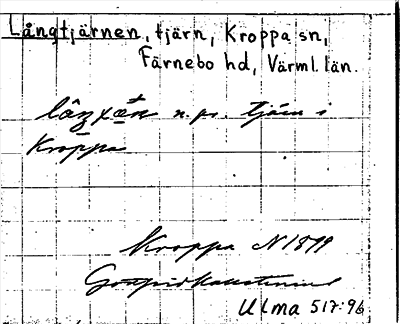 Långtjärnen, tjärn, Kroppa sn,
Färnebo hd, Värml. län.
n. pr. tjärn i
Kroppa
Kroppa N 1899
Ulma 517:96